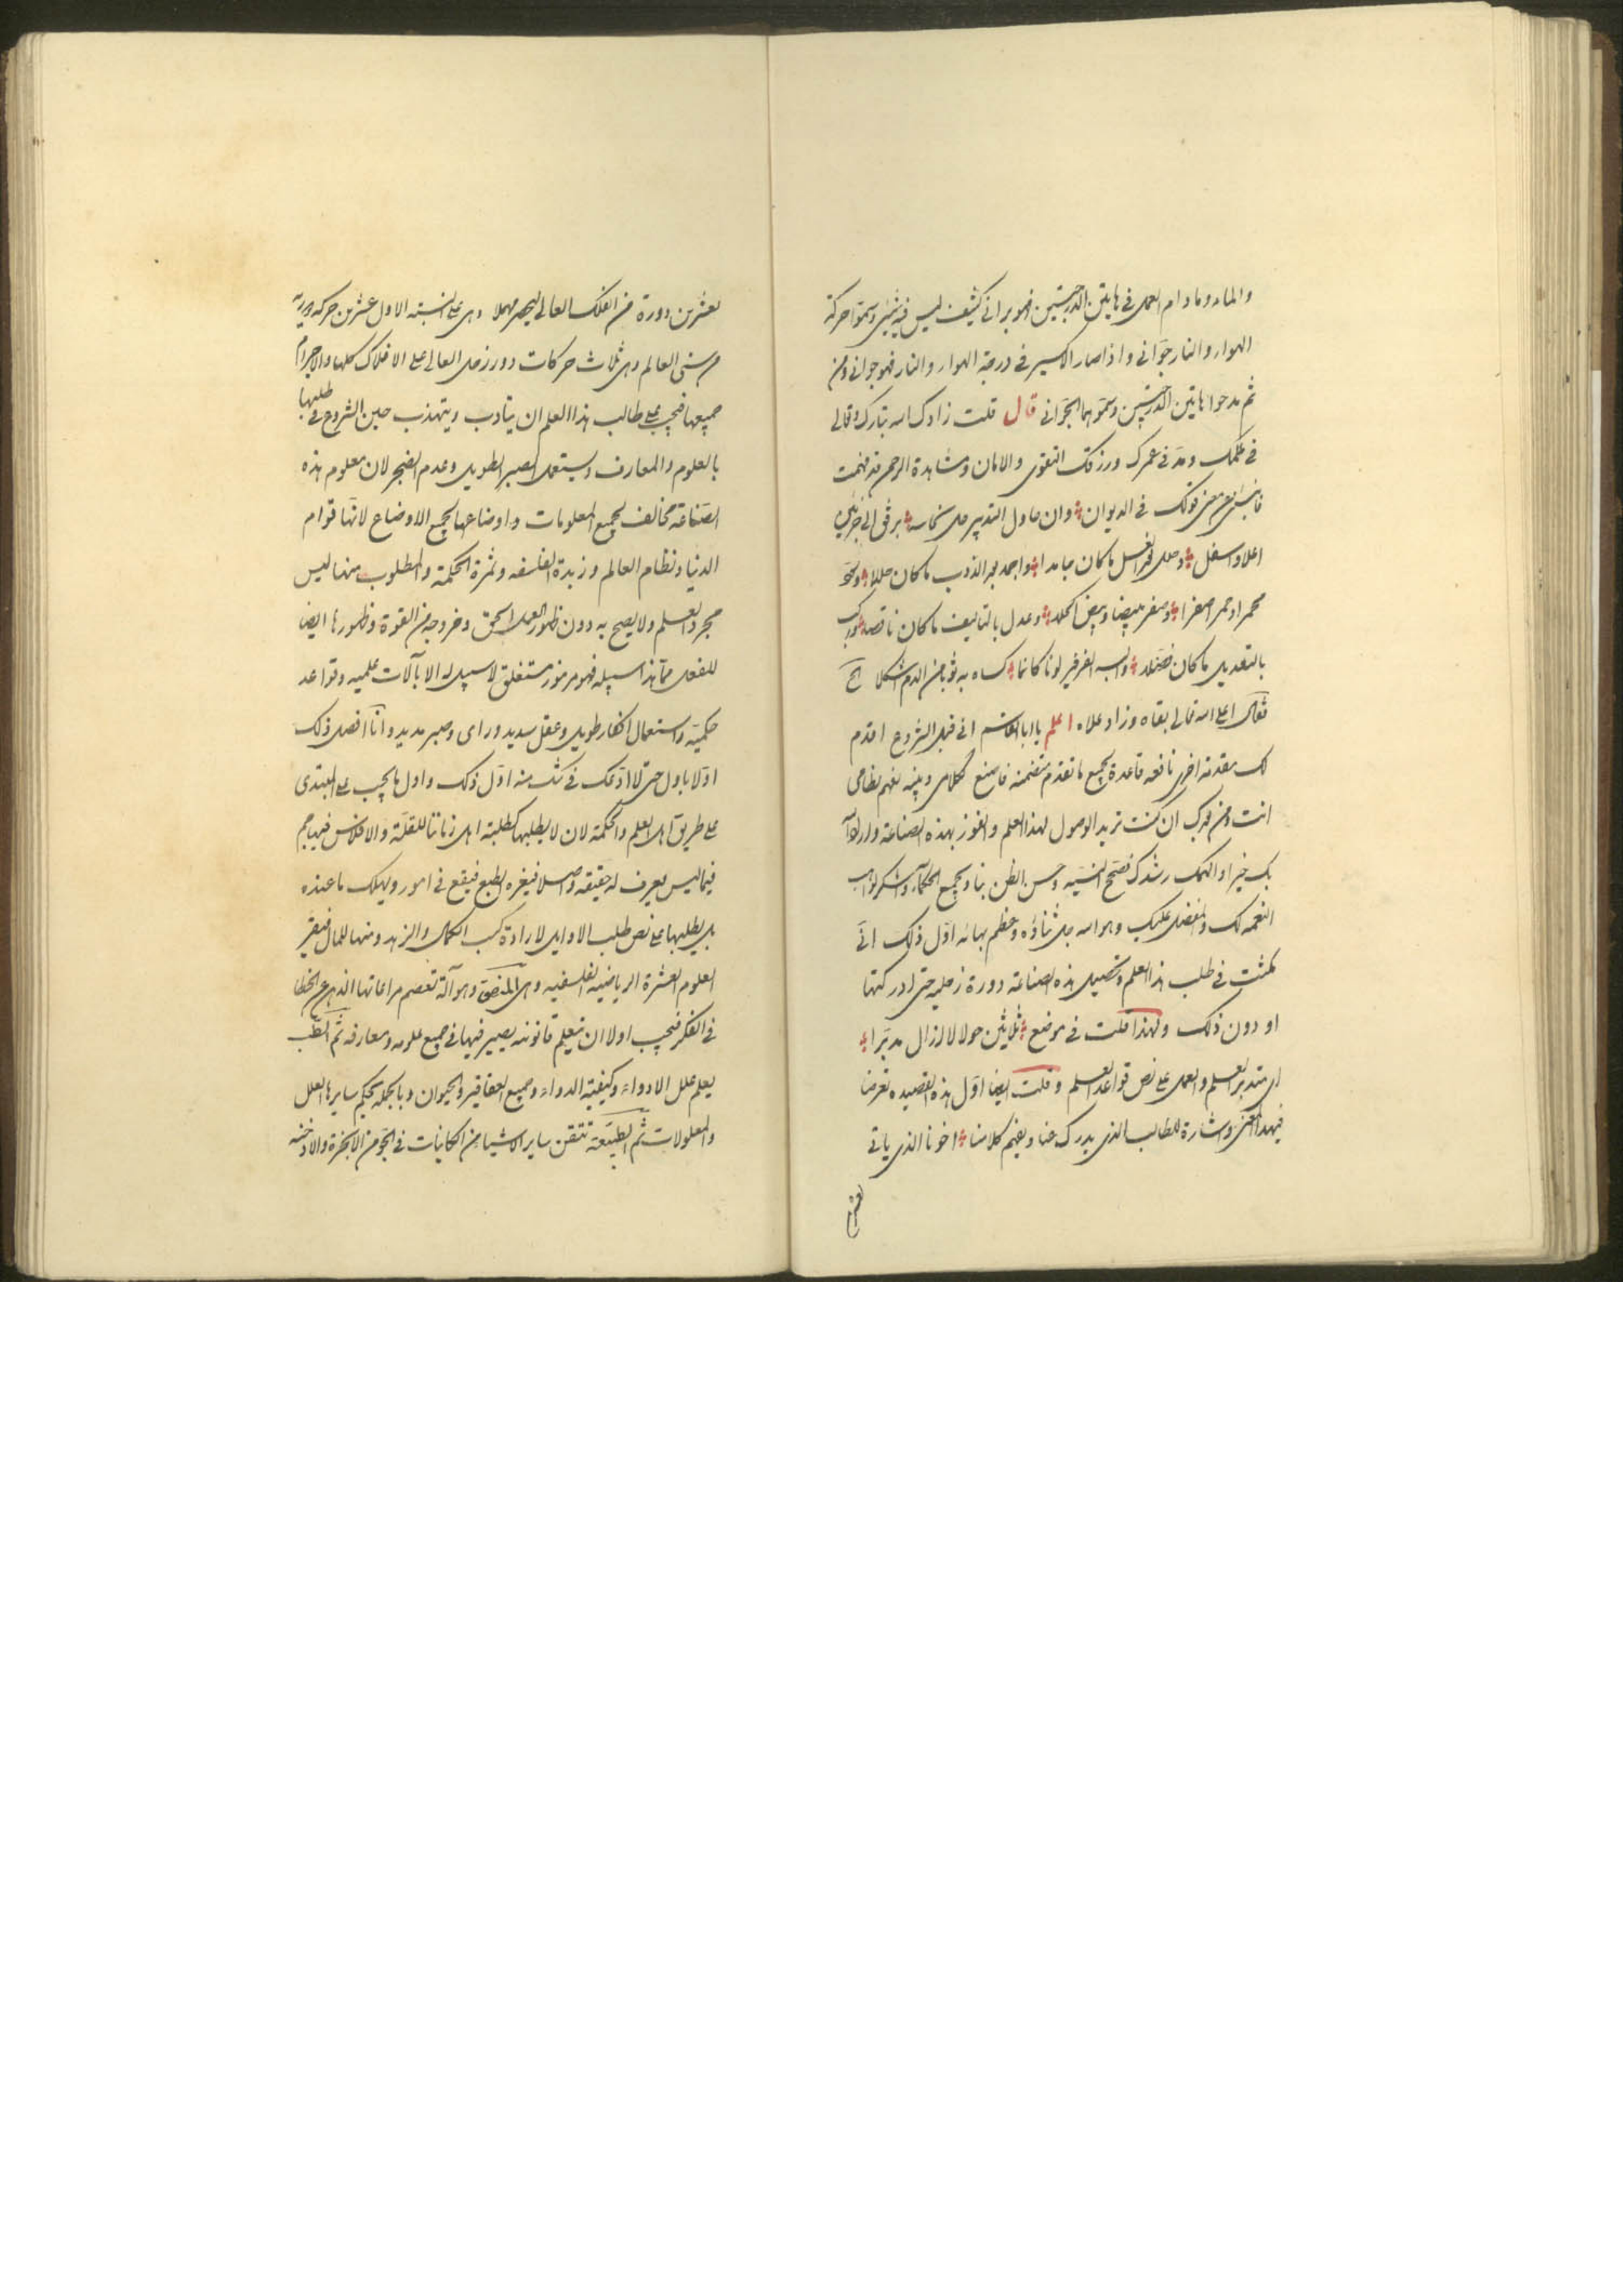 والماء وما دام العمل فى هاتين الدرجتين فهو برانى كثيف ليس فيه شئ وسموا حركة
الهواء والنار جوانى واذا صار الاكسير فى درجة الهواء والنار فهو جوانى ومن
ثم مدحوا هاتين الدرجتين وسموهما الجوانى قال قلت زادك الله تبارك وتعالى
فى علمك ومد فى عمرك ورزقك التقوى والامان ومشاهدة الرحمن قد فهمت
معنى قولك فى الديوان وان حاول التدبير حل نحاسه برفق الى
اعلا واسفل وحل لغسل ما كان جامدا واجمد بعد الذوب ما كان
محمرا وحمر اصفرا وصفر مبيضا وبيض وعدل بالتاليف ما كان ناقصا
بالتعديل ما كان والبسه الفرفير لونا كانما كساه به ثوبا من الدم اشكلا الخ
فقال اعلى الله تعالى بقاه وزاد علاه اعلم يا ابا القاسم انى قبل الشروع اقدم
لك مقدمة اخرى نافعة قاعدة بجميع ما تقدم متضمنة فاسمع كلامى وتفهم نظامى
انت ومن ان كنت تريد الوصول لهذا العلم والفوز بهذه الصناعة واراد الله
بك خيرا والهمك رشدك فصحح النية وحسن الظن بنا وبجميع الحكماء واشكر لواهب
النعمة لك والمفضل عليك وهو الله جل ثناؤه وعظم بهائه اول ذلك انى
مكثت فى طلب هذا العلم وتحصيل هذه الصناعة دورة زحلية حتى ادركتها
او دون ذلك ولهذا قلت فى موضع ثلاثين حولا لا ازال مدبرا
اى متدبر العلم والعمل على نص قواعد العلم وقلت ايضا اول هذه القصيدة تعرضا
فيهذا المعنى واشارة للطالب الذى يدرك عنا ويفهم كلامنا اخونا الذى ياتى
بعشرين
بعشرين دورة من الفلك العالى ليبصر مهلا وهى على النسبة الاول عشرين حركة دورية
من سنى العالم وهى ثلاث حركات دور زحل العالى على الافلاك كلها والاجرام
جميعها فيجب على طالب هذا العلم ان يتادب ويتهذب حين الشروع فى طلبها
بالعلوم والمعارف ويستعمل الصبر الطويل وعدم الضجر لان معلوم هذه
الصناعة مخالف لجميع المعلومات واوضاعها لجميع الاوضاع لانها قوام
الدنيا ونظام العالم وزبدة الفلسفه وثمرة الحكمة والمطلوب منها ليس
مجرد العلم ولا يصح به دون ظهور العمل الحق وخروجه من القوة وظهورها ايضا
للفعل مما هذا سبيله فهو مرموز مستغلق لا سبيل له الا بآلات علمية وقواعد
حكمية واستعمال افكار طويل وعقل سديد وراى وصبر مديد وانا افصل ذلك
اولا باول حتى لا ادعك فى شك منه اول ذلك واول ما يجب على المبتدى
على طريق اهل العلم والحكمة لان لا يطلبها كطلبة اهل زماننا للقلة والافلاس فيهاجم
فيما ليس يعرف له حقيقة واصلا فيغره الطبع فيقع فى امور ويهلك ما عنده
بل يطلبها على نص طلب الاوايل لارادة كسب الكمال والزهد ومنها للمال فيقر
العلوم العشرة الرياضية الفلسفية وهى المنطق وهو آلة تعصم مراعاتها الذهن عن الخطا
فى الفكر فيجب اولا ان يتعلم قانونه يصير فيها فى جميع علومه ومعارفه ثم الطب
يعلم علل الادواء وكيفية الدواء وجميع العقاقير والحيوان وبالجملة تحكيم ساير ها العلل
والمعلولات ثم الطبيعة تتقن ساير الاشيا من الكاينات فى الجو من الابخرة والادخنه